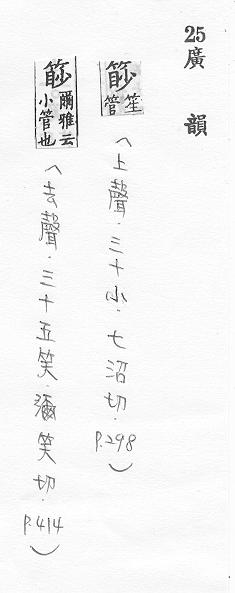 25廣韻
筯 笙管(上聲.三十小.七沼切.P.298)
筯 爾雅云小管也(去聲.三十五笑.彌笑切.P.414)